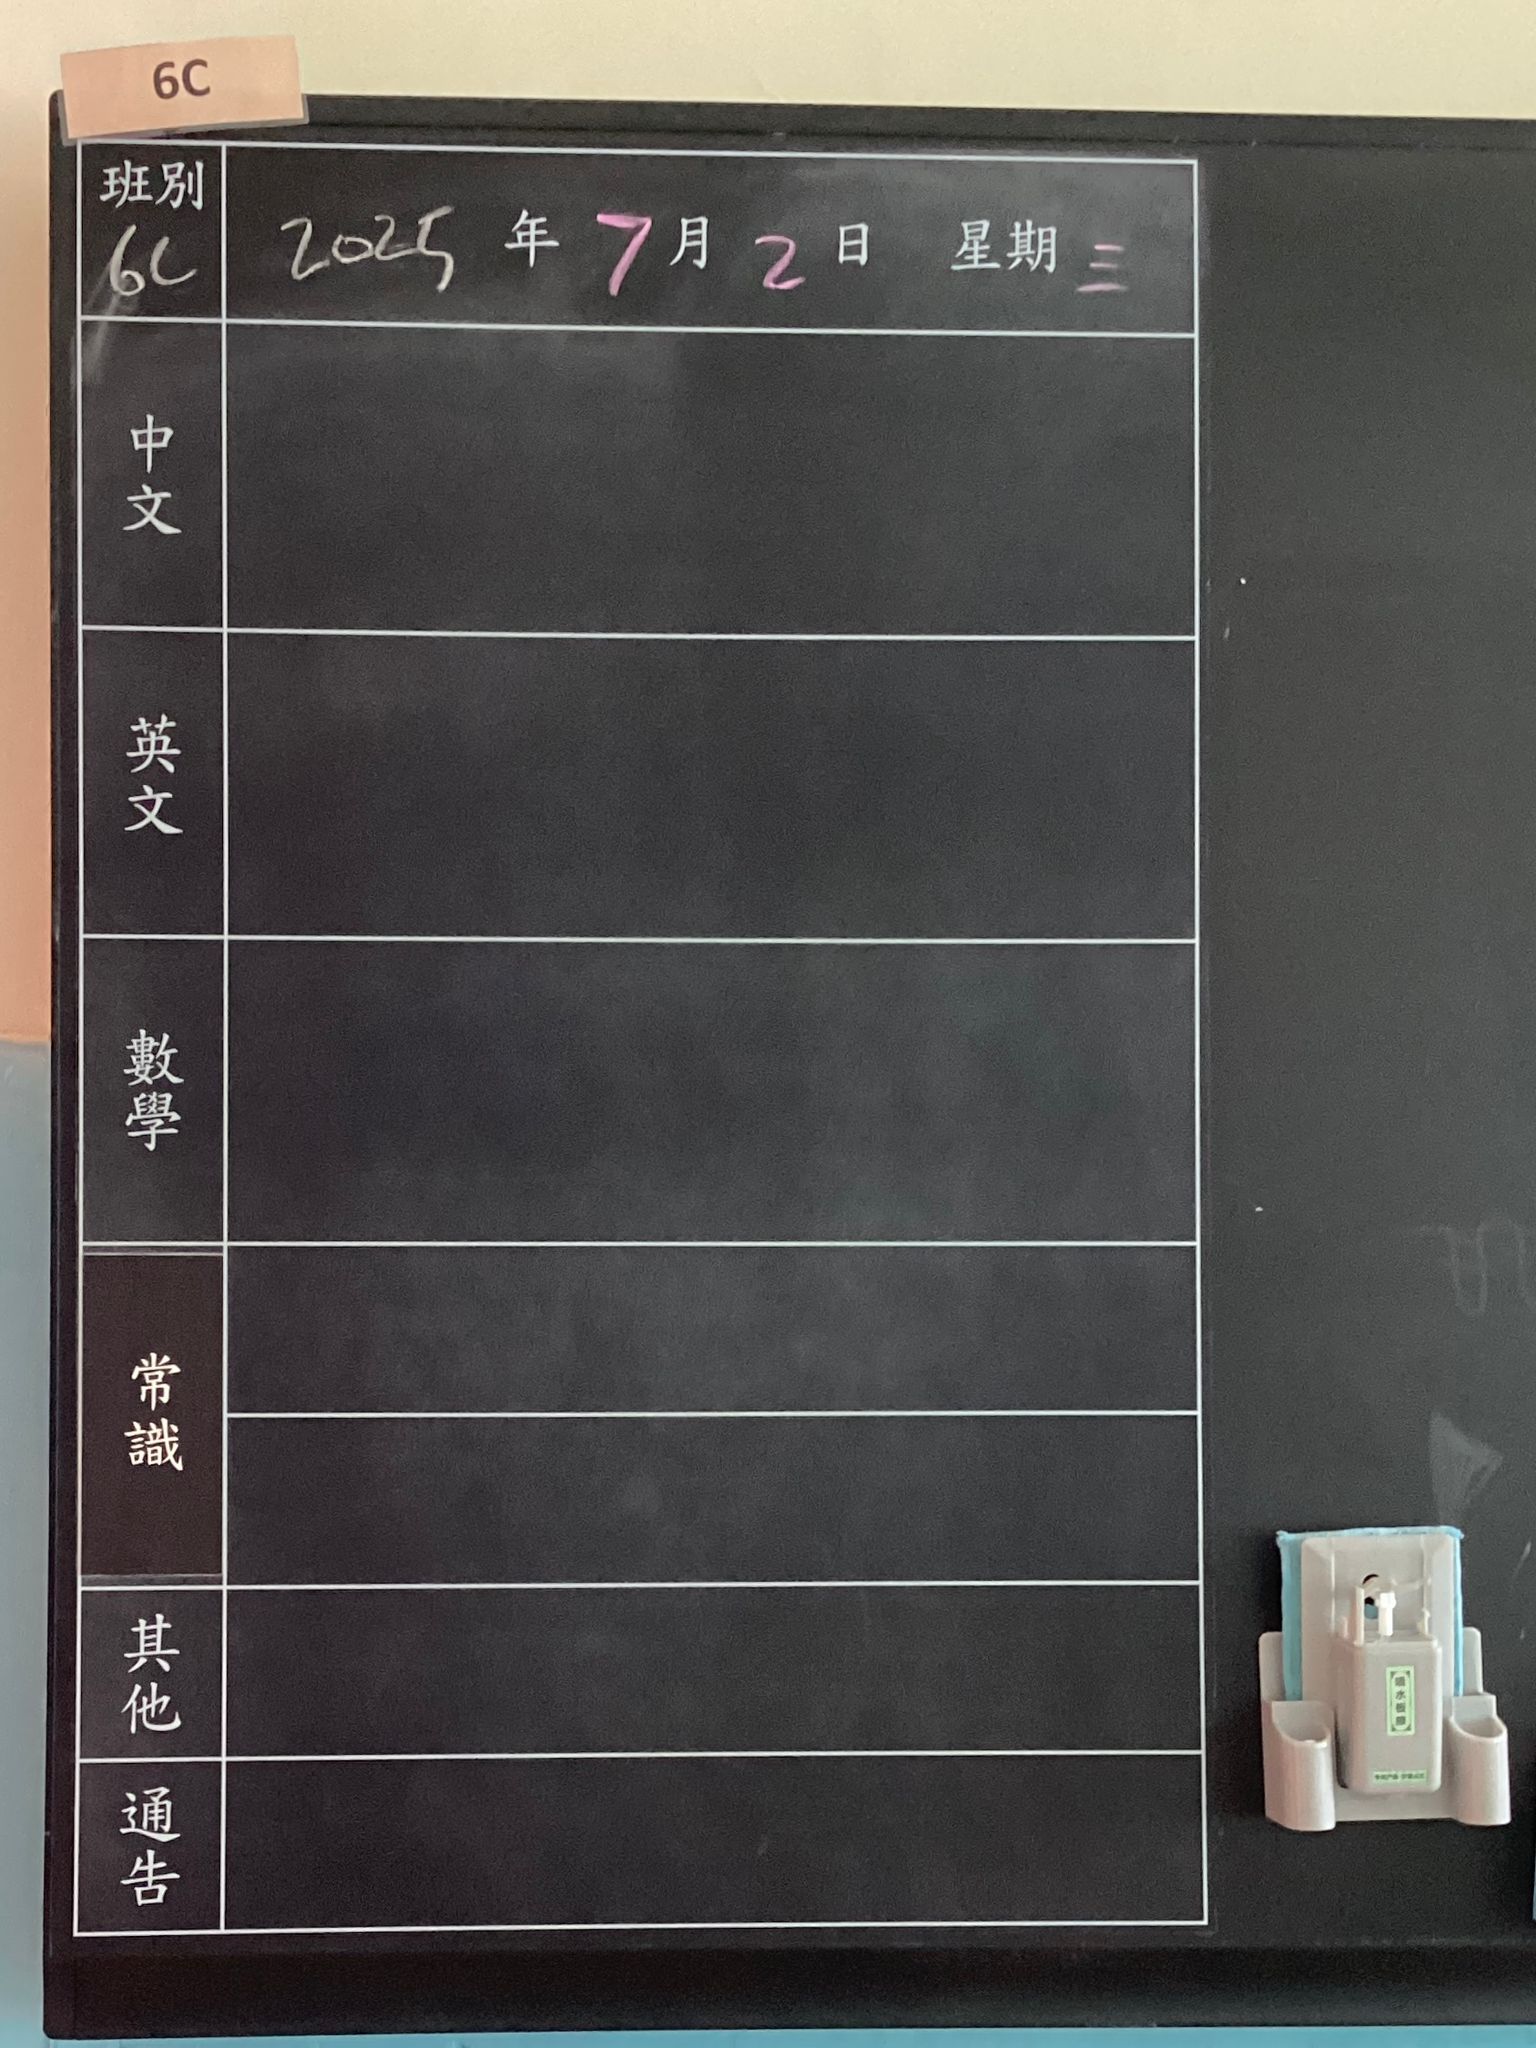 6C
班別
6C
2025 年 7 月 2 日 星期 三
中文
英文
數學
常識
其他
通告
吸水板擦